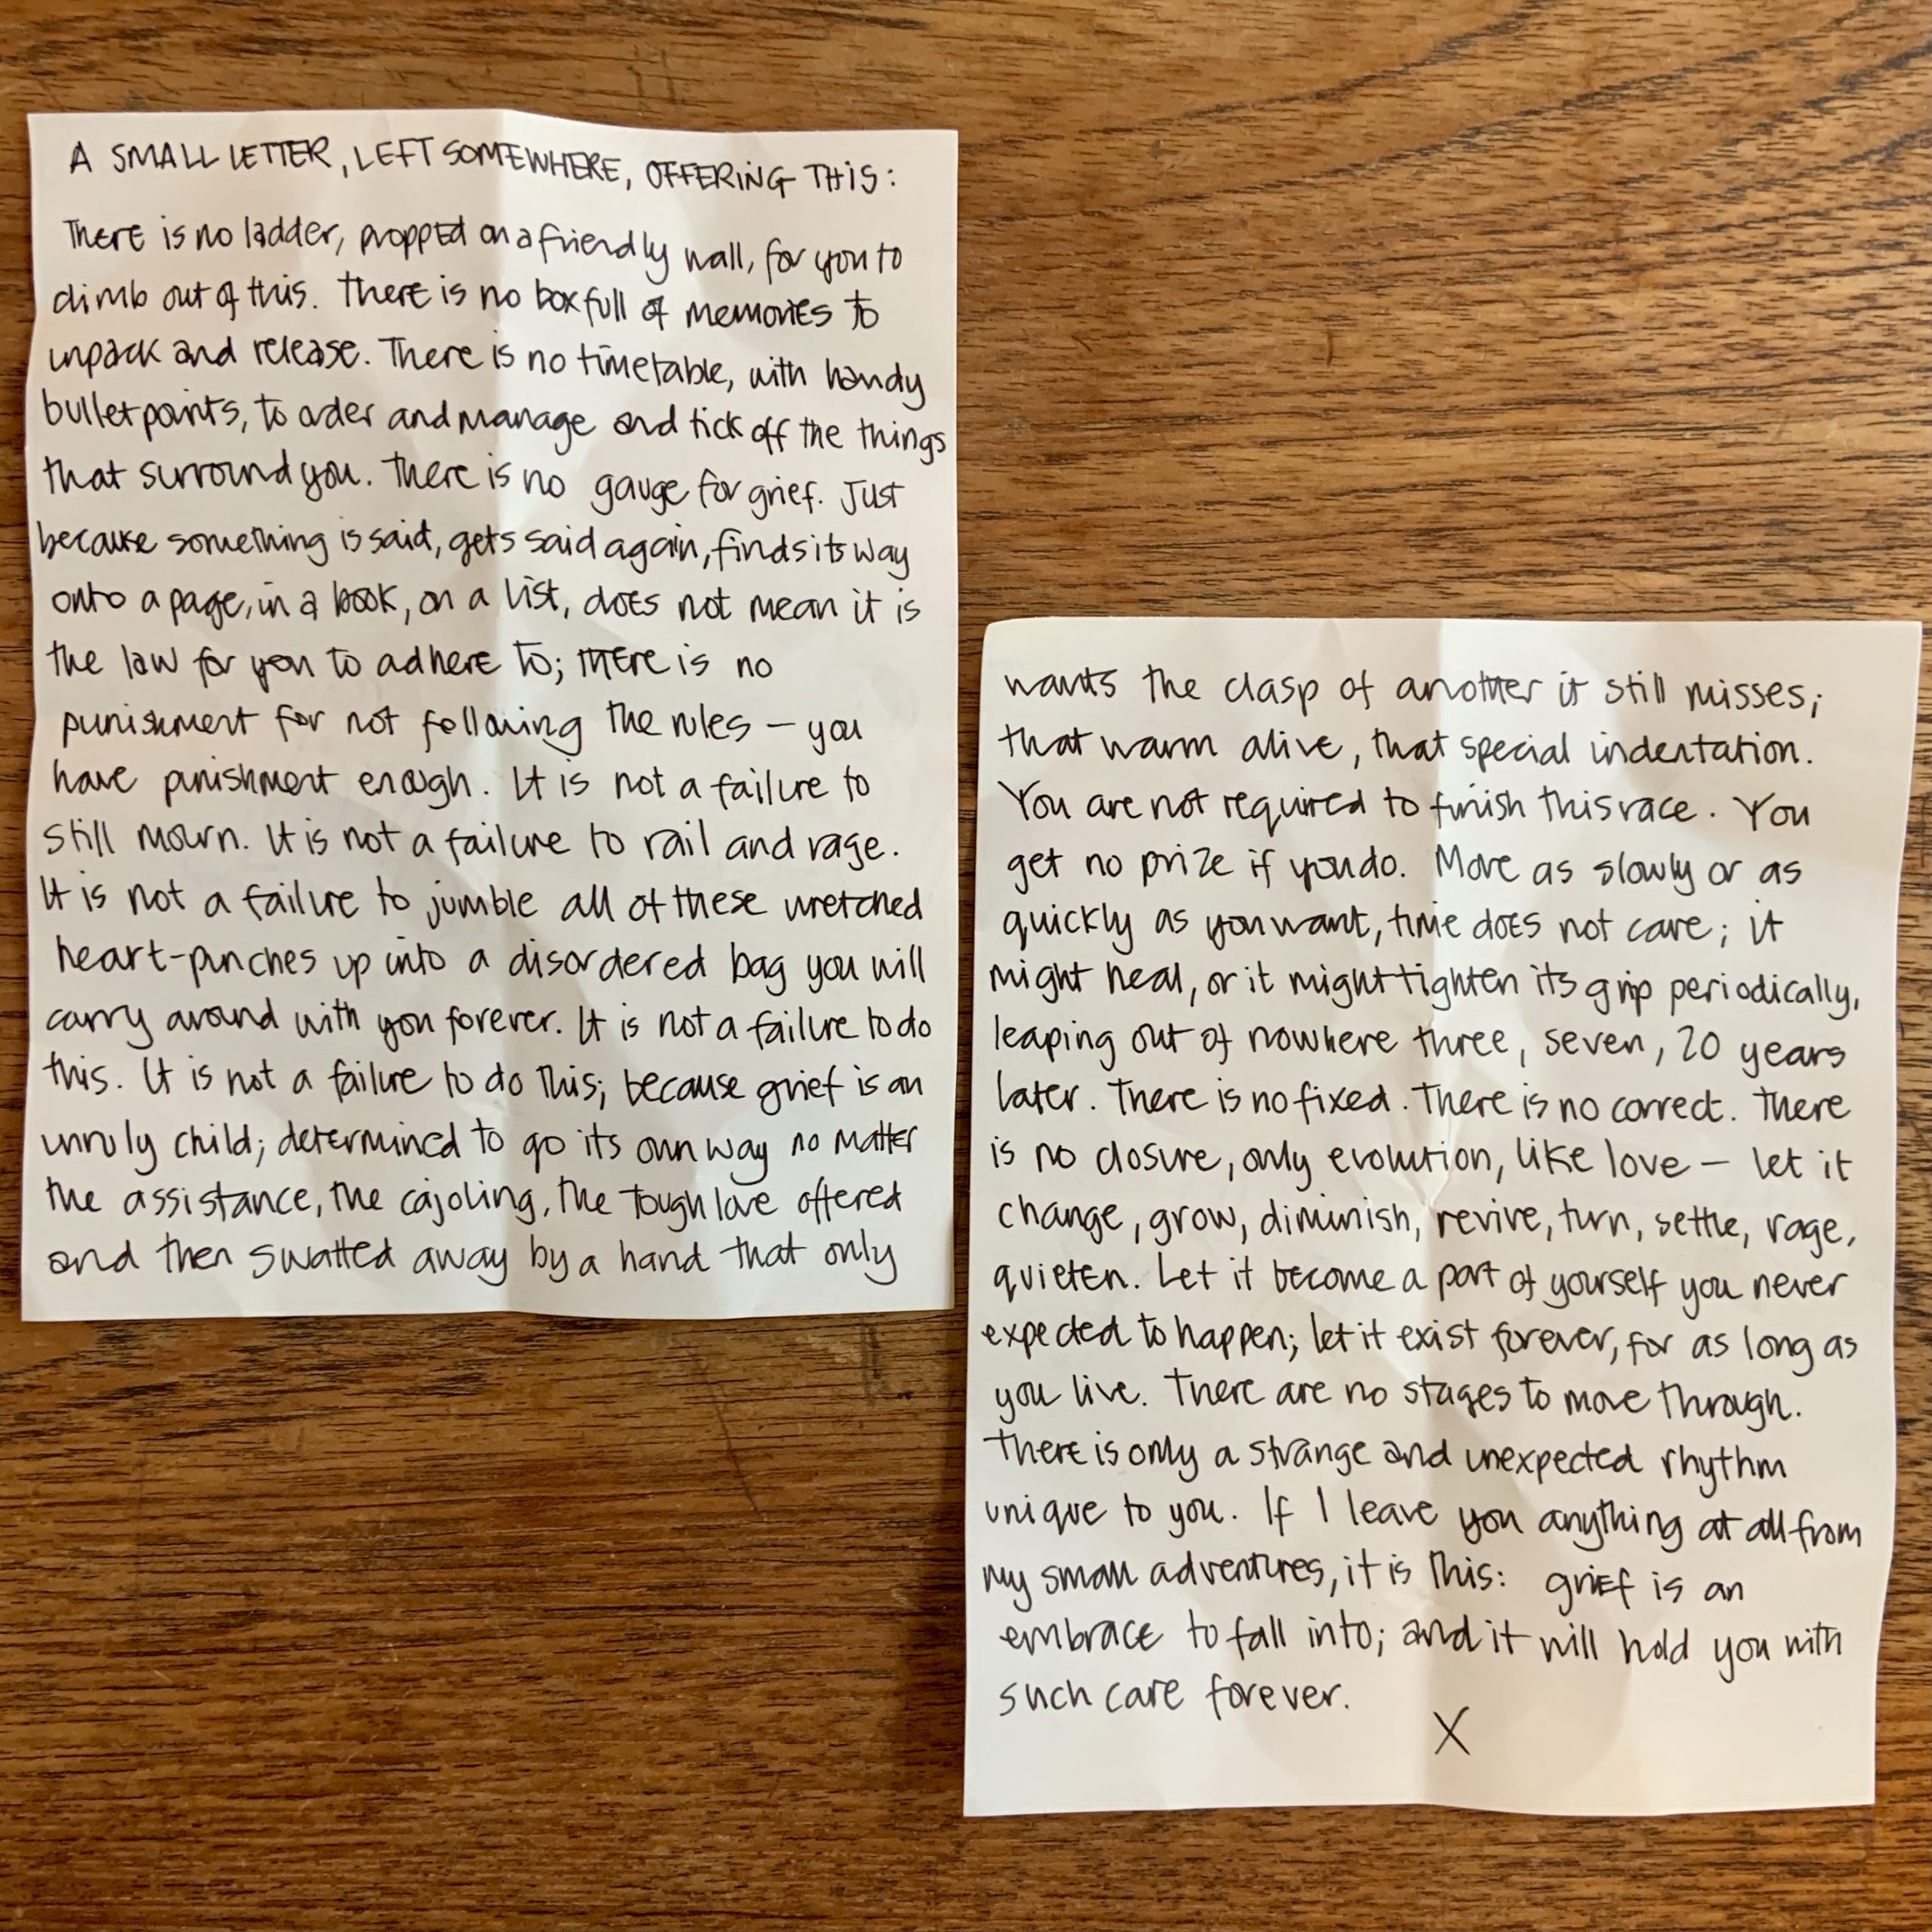 A SMALL LETTER, LEFT SOMEWHERE, OFFERING THIS:
There is no ladder, propped on a friendly wall, for you to
climb out of this. There is no box full of memories to
unpack and release. There is no timetable, with handy
bullet points, to order and manage and tick off the things
that surround you. There is no gauge for grief. Just
because something is said, gets said again, finds its way
onto a page, in a book, on a list, does not mean it is
the law for you to adhere to; there is no
punishment for not following the rules – you
have punishment enough. It is not a failure to
still mourn. It is not a failure to rail and rage.
It is not a failure to jumble all of these wretched
heart-punches up into a disordered bag you will
carry around with you forever. It is not a failure to do
this. It is not a failure to do this; because grief is an
unruly child; determined to go its own way no matter
the assistance, the cajoling, the tough love offered
and then swatted away by a hand that only
wants the clasp of another it still misses;
that warm alive, that special indentation.
You are not required to finish this race. You
get no prize if you do. Move as slowly or as
quickly as you want, time does not care; it
might heal, or it might tighten its grip periodically,
leaping out of nowhere three, seven, 20 years
later. There is no fixed. There is no correct. There
is no closure, only evolution, like love – let it
change, grow, diminish, revive, turn, settle, rage,
quieten. Let it become a part of yourself you never
expected to happen; let it exist forever, for as long as
you live. There are no stages to move through.
There is only a strange and unexpected rhythm
unique to you. If I leave you anything at all from
my small adventures, it is this: grief is an
embrace to fall into; and it will hold you with
such care forever.
X